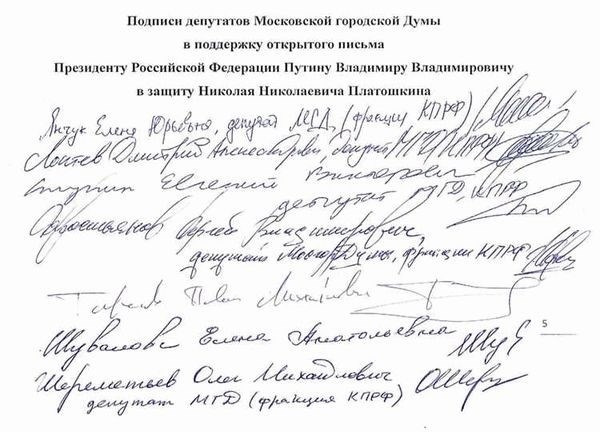 Подписи депутатов Московской городской Думы
в поддержку открытого письма
Президенту Российской Федерации Путину Владимиру Владимировичу
в защиту Николая Николаевича Платошкина
Янчук Елена Юрьевна, депутат МГД (фракции КПРФ)
Локтев Дмитрий Александрович, депутат МГД КПРФ
Ступин Евгений Викторович
депутат МГД, КПРФ
Савостьянов Сергей Владимирович,
депутат МосгорДумы, фракции КПРФ
Тарасов Павел Михайлович
5
Шувалова Елена Анатольевна
Шереметьев Олег Михайлович
депутат МГД (фракция КПРФ)